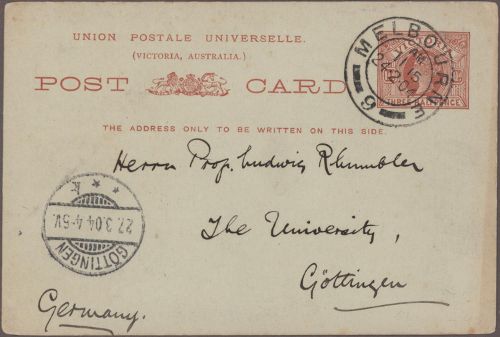 UNION POSTALE UNIVERSELLE.
(VICTORIA, AUSTRALIA.)
POST CARD
THE ADDRESS ONLY TO BE WRITTEN ON THIS SIDE.
MELBOURNE
6
VICTORIA
THREE HALFPENCE
Herrn Prof. Ludwig Rhumbler
The University,
Göttingen
Germany.
GÖTTINGEN
27.3.04.4-5V.
* * k